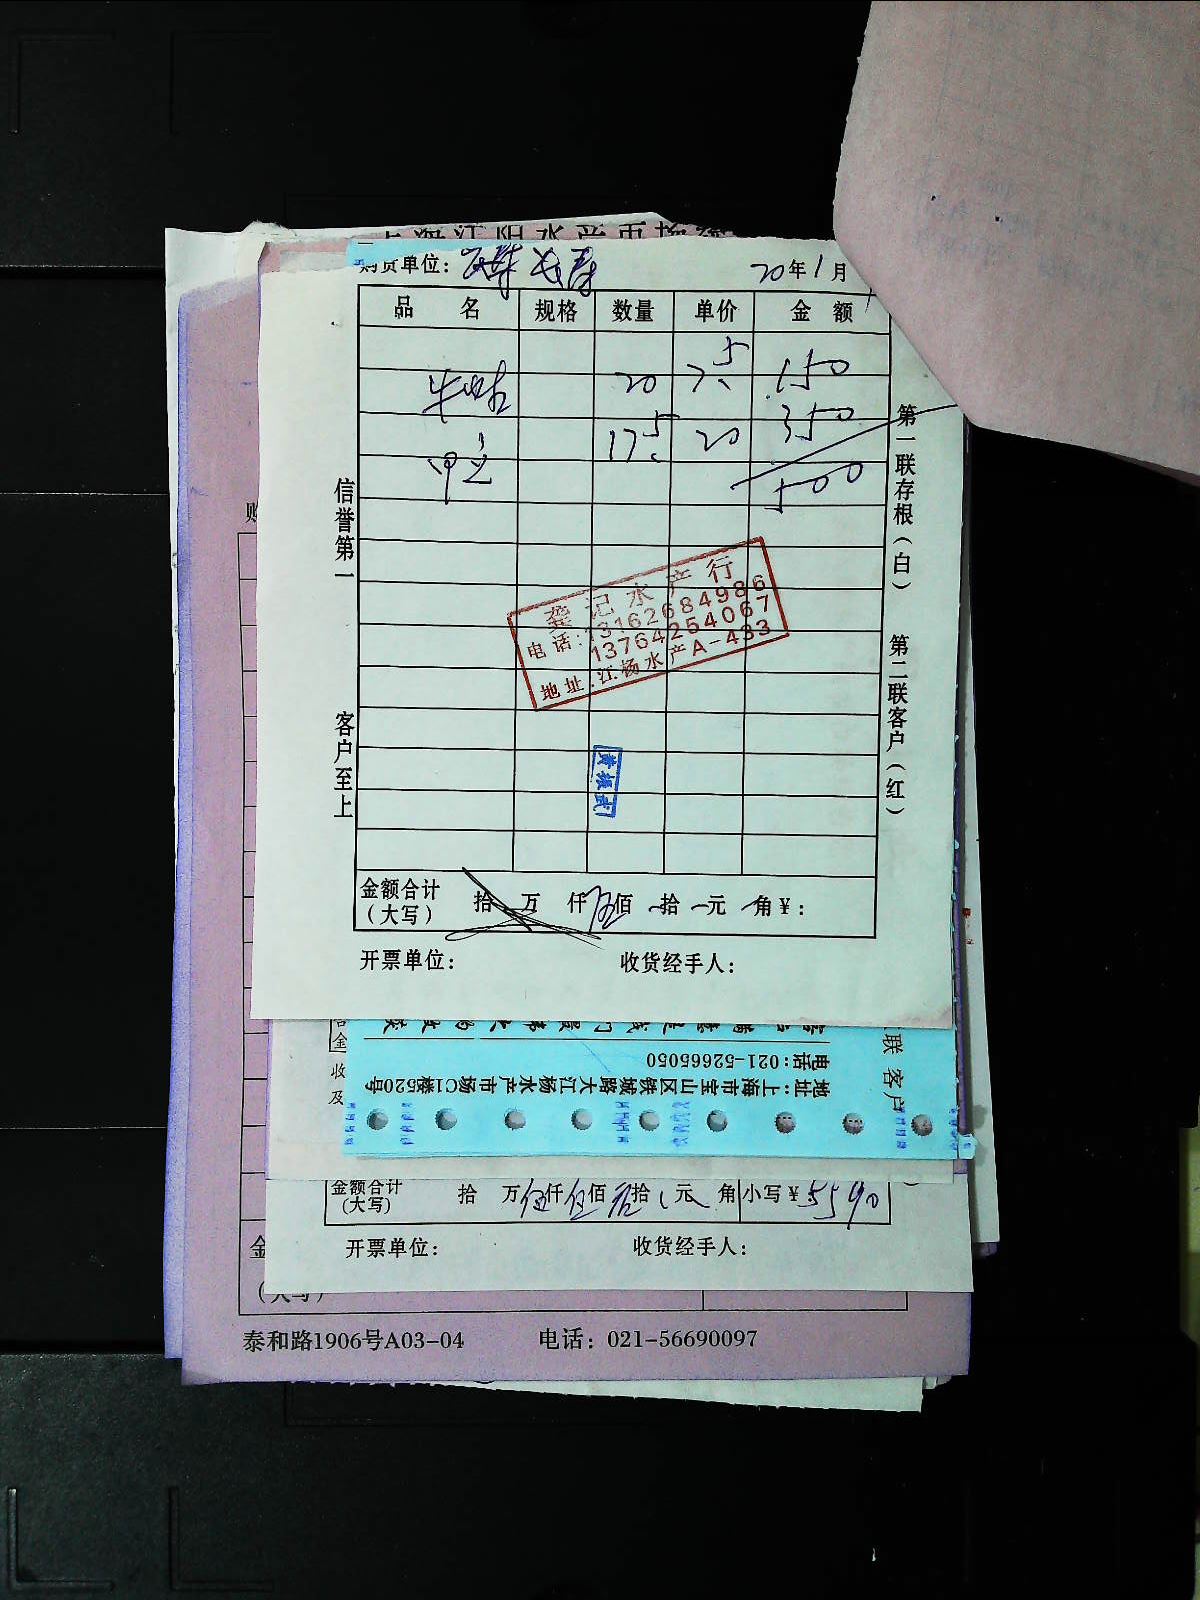 购货单位：
20年1月
品 名 规格 数量 单价 金 额
牛蛙 20 7.5 150
17.5 20 350
500
信誉第一
客户至上
第一联存根（白）
第二联客户（红）
龚记水产行
电话：13162684986
13764254067
地址：江杨水产A-433
黄振武
金额合计（大写） 拾 万 仟 伍佰 拾 元 角￥：
开票单位： 收货经手人：
联 客户
电话：021-52665050
地址：上海市宝山区铁城路大江杨水产市场C1楼520号
收
及
金额合计（大写） 拾 万 伍仟 伍佰 玖拾 元 角 小写￥5590
开票单位： 收货经手人：
金
（大写）
泰和路1906号A03-04 电话：021-56690097